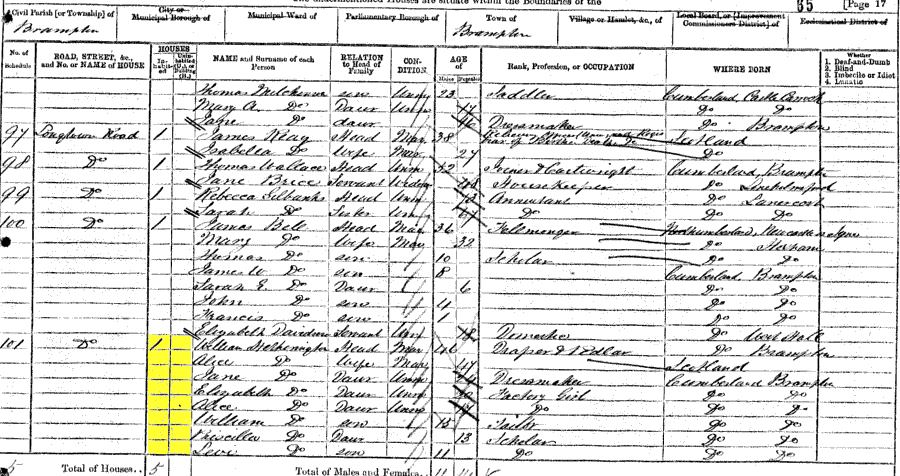 The undermentioned Houses are situate within the Boundaries of the
65 [Page 17
Civil Parish [or Township] of City or Municipal Borough of Municipal Ward of Parliamentary Borough of Town of Village or Hamlet, &c., of Local Board, or [Improvement Commissioners District] of Ecclesiastical District of
Brampton Brampton
No. of Schedule ROAD, STREET, &c., and No. or NAME of HOUSE HOUSES Inhabited Uninhabited (U.) or Building (B.) NAME and Surname of each Person RELATION to Head of Family CONDITION AGE of Males Females Rank, Profession, or OCCUPATION WHERE BORN Whether 1. Deaf-and-Dumb 2. Blind 3. Imbecile or Idiot 4. Lunatic
Thomas son Unm 23 Saddler Cumberland, Castle Carrock
Mary A. Do Daur Unm 17 Do Do
Jane Do daur Dressmaker Do Brampton
97 Longtown Road 1 James Head Mar 38 Scotland
Isabella Do Wife Mar 27 Do
98 Do 1 Thomas Wallace Head Unm 32 Joiner & Cartwright Cumberland, Brampton
Jane Brice Servant Widow Housekeeper Do
99 Do 1 Rebecca Head Unm Annuitant Do Lanercost
Sarah Do Sister Unm Do Do
100 Do 1 James Bell Head Mar 36 Fellmonger Northumberland, Newcastle
Mary Do Wife Mar 32 Do Hexham
Thomas Do son 10 Scholar Do Do
James W Do son 8 Cumberland, Brampton
Sarah E. Do Daur 6 Do Do
John Do son 4 Do Do
Francis Do son 1 Do Do
Elizabeth Davidson Servant Un 18 Domestic Do
101 Do 1 William Hetherington Head Mar 46 Draper & Pedlar Do Brampton
Alice Do Wife Mar 47 Scotland
Jane Do Daur Unm Dressmaker Cumberland Brampton
Elizabeth Do Daur Unm Factory Girl Do Do
Alice Do Daur Unm Do Do Do
William Do son 15 Do Do
Priscilla Do Daur 13 Scholar Do Do
Levi Do son 11 Do Do Do
5 Total of Houses.. 5 Total of Males and Females.. 11